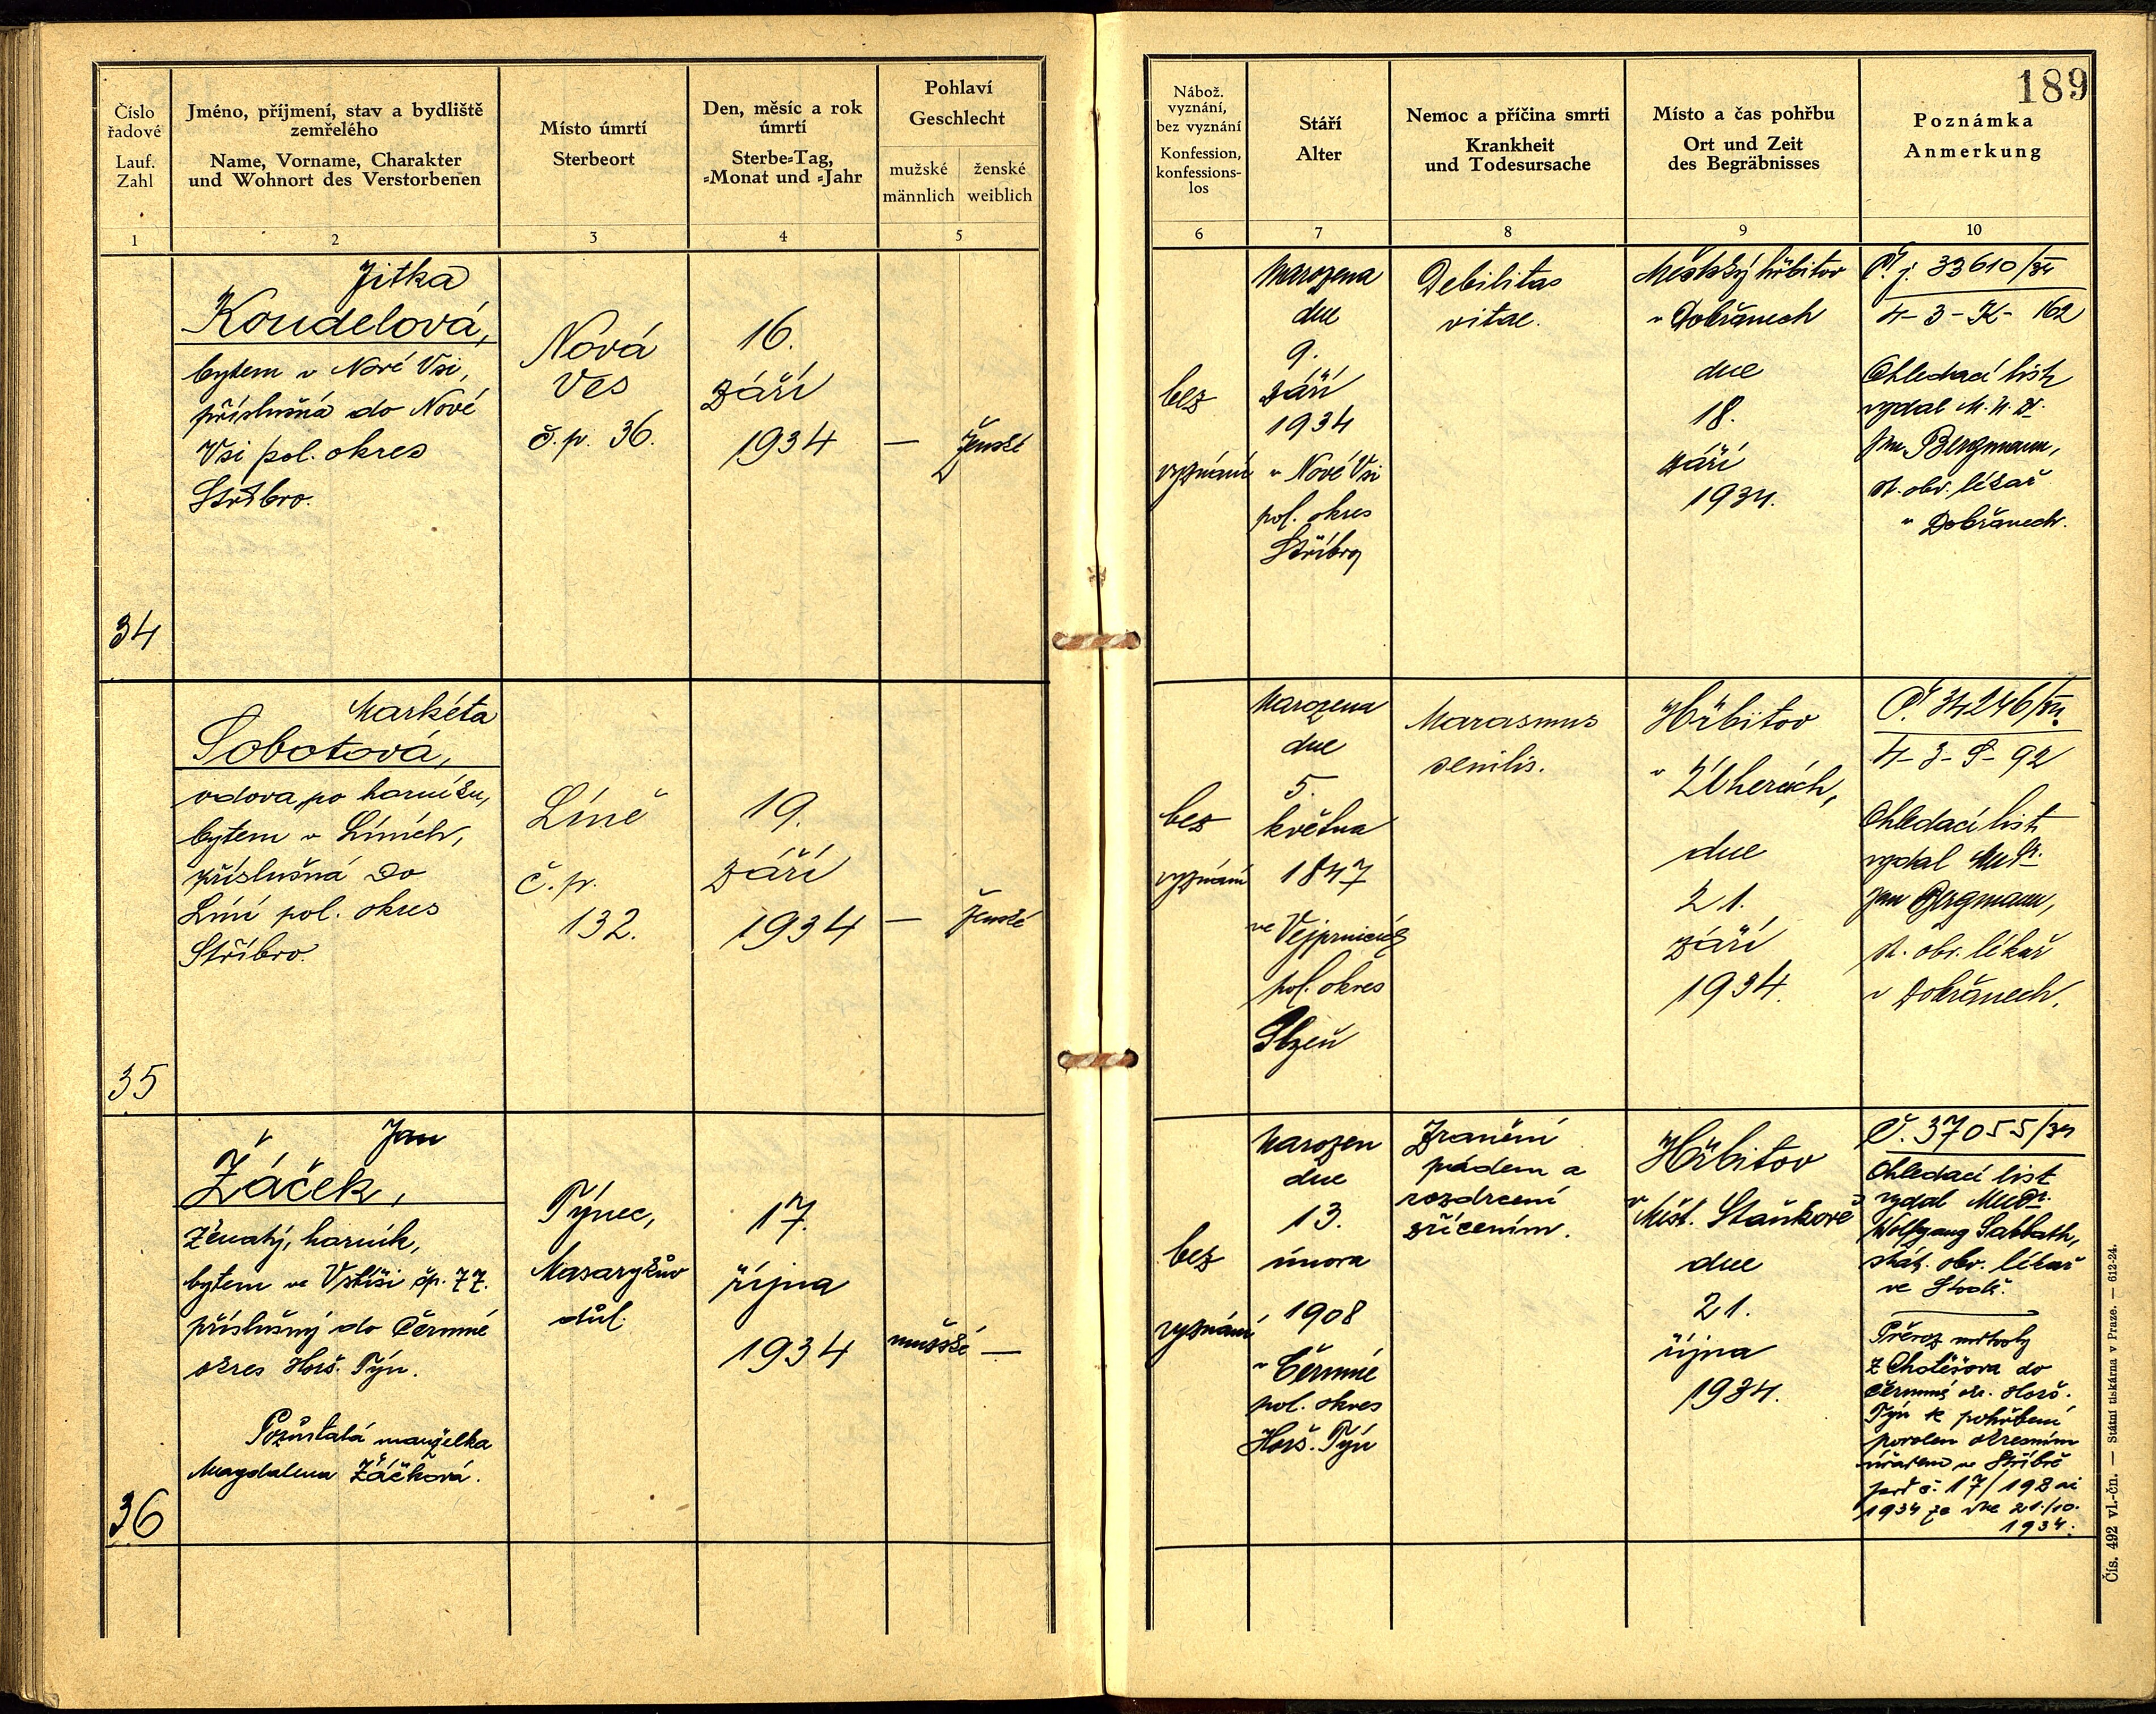 189
Číslo
řadové
Lauf.
Zahl
Jméno, příjmení, stav a bydliště
zemřelého
Name, Vorname, Charakter
und Wohnort des Verstorbenen
Místo úmrtí
Sterbeort
Den, měsíc a rok
úmrtí
Sterbe-Tag,
-Monat und -Jahr
Pohlaví
Geschlecht
mužské
männlich
ženské
weiblich
Nábož.
vyznání,
bez vyznání
Konfession,
konfessions-
los
Stáří
Alter
Nemoc a příčina smrti
Krankheit
und Todesursache
Místo a čas pohřbu
Ort und Zeit
des Begräbnisses
Poznámka
Anmerkung
1
2
3
4
5
6
7
8
9
10
34
Jitka
Koudelová,
bytem v Nové Vsi,
příslušná do Nové
Vsi pol. okres
Stříbro.
Nová
Ves
č. p. 36.
16.
září
1934
—
ženské
bez
vyznání
Narozena
dne
9.
září
1934
v Nové Vsi
pol. okres
Stříbro
Debilitas
vitae.
Městský hřbitov
v Dobřanech
dne
18.
září
1934.
Č. j. 33610/34
4-3-K-162
Ohledací list
vydal M. U. Dr.
Jan Bergmann,
st. obv. lékař
v Dobřanech.
35
Markéta
Sobotová,
vdova po horníku,
bytem v Líních,
příslušná do
Líní pol. okres
Stříbro.
Líně
č. p.
132.
19.
září
1934
—
ženské
bez
vyznání
Narozena
dne
5.
května
1847
ve Vejprnicích
pol. okres
Plzeň
Marasmus
senilis.
Hřbitov
v Úherách,
dne
21.
září
1934.
Č. 34246/
4-3-S-92
Ohledací list
vydal MUDr.
Jan Bergmann,
st. obv. lékař
v Dobřanech.
36
Jan
Žáček,
ženatý, horník,
bytem ve Vstiši čp. 77.
příslušný do Čermné
okres Horš. Týn.
Pozůstalá manželka
Magdalena Žáčková.
Týnec,
Masarykův
důl.
17.
října
1934
mužské
—
bez
vyznání
Narozen
dne
13.
února
1908
v Čermné
pol. okres
Horš. Týn
Zranění
pádem a
rozdrcení
zřícením.
Hřbitov
v Měst. Staňkově
dne
21.
října
1934.
Č. 37055/34
Ohledací list
vydal MUDr.
Wolfgang Sabbath,
stát. obv. lékař
ve Stodě.
Převoz mrtvoly
z Chotěšova do
Čermné ok. Horš.
Týn k pohřbení
povolen okresním
úřadem ve Stříbře
pod č. 17/198 ai
1934 ze dne 21./10.
1934.
Čís. 492 vl.-čn. — Státní tiskárna v Praze. — 612-24.